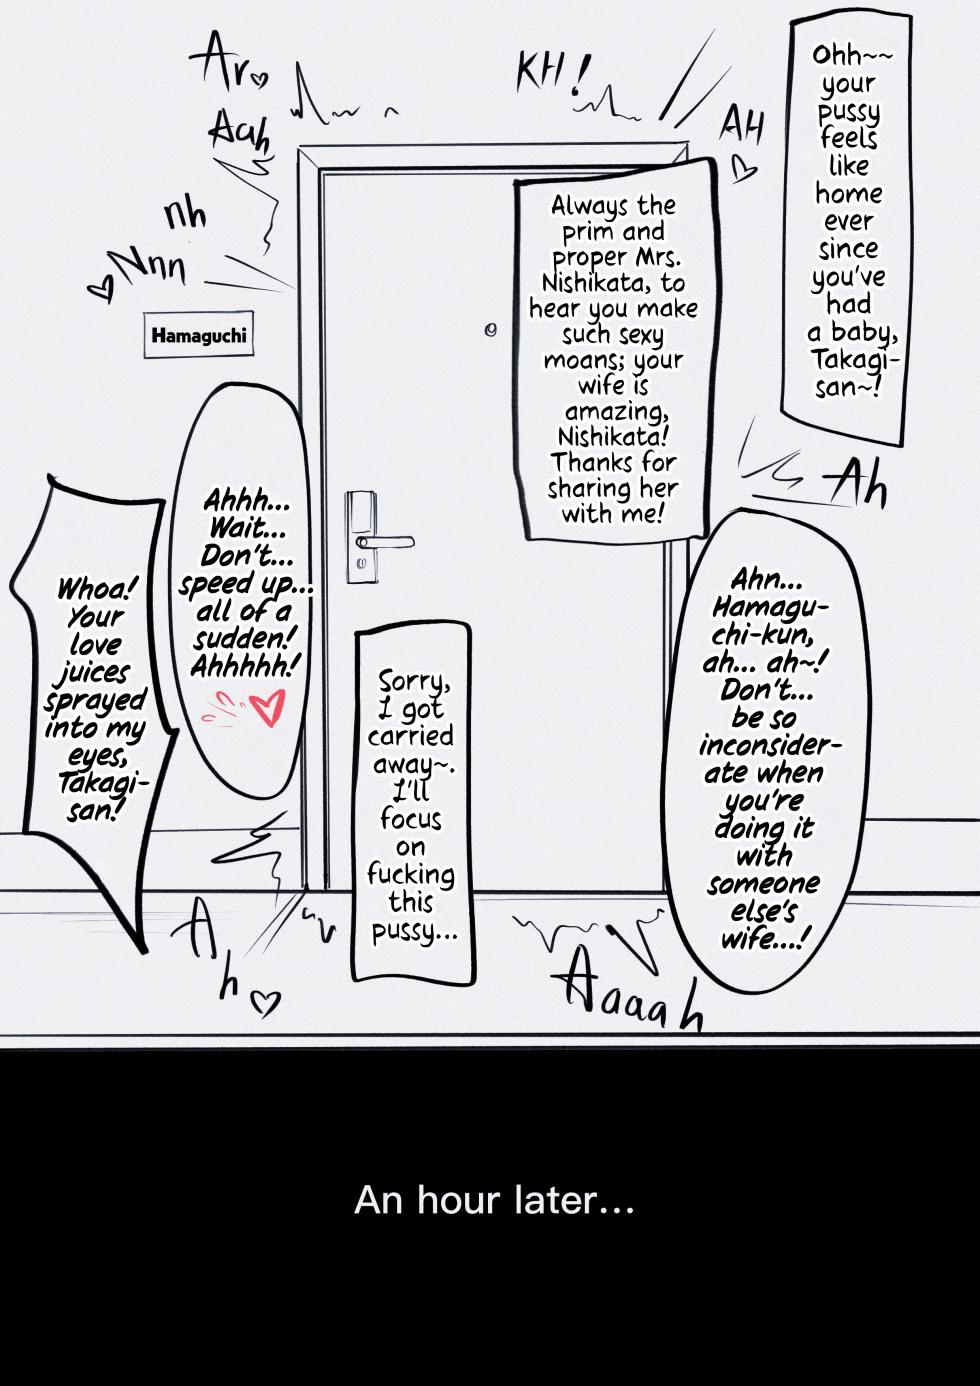 Ohh~~
your
pussy
feels
like
home
ever
since
you've
had
a baby,
Takagi-
san~!
Always the
prim and
proper Mrs.
Nishikata, to
hear you make
such sexy
moans; your
wife is
amazing,
Nishikata!
Thanks for
sharing her
with me!
Ar♥
Aah
KH!
AH
♥
nh
♥Nnn
Hamaguchi
Ah
Ahn...
Hamagu-
chi-kun,
ah... ah~!
Don't...
be so
inconsider-
ate when
you're
doing it
with
someone
else's
wife...!
Sorry,
I got
carried
away~.
I'll
focus
on
fucking
this
pussy...
Ahhh...
Wait...
Don't...
speed up...
all of a
sudden!
Ahhhhh!
Whoa!
Your
love
juices
sprayed
into my
eyes,
Takagi-
san!
Ah♥
Aaaah
An hour later...